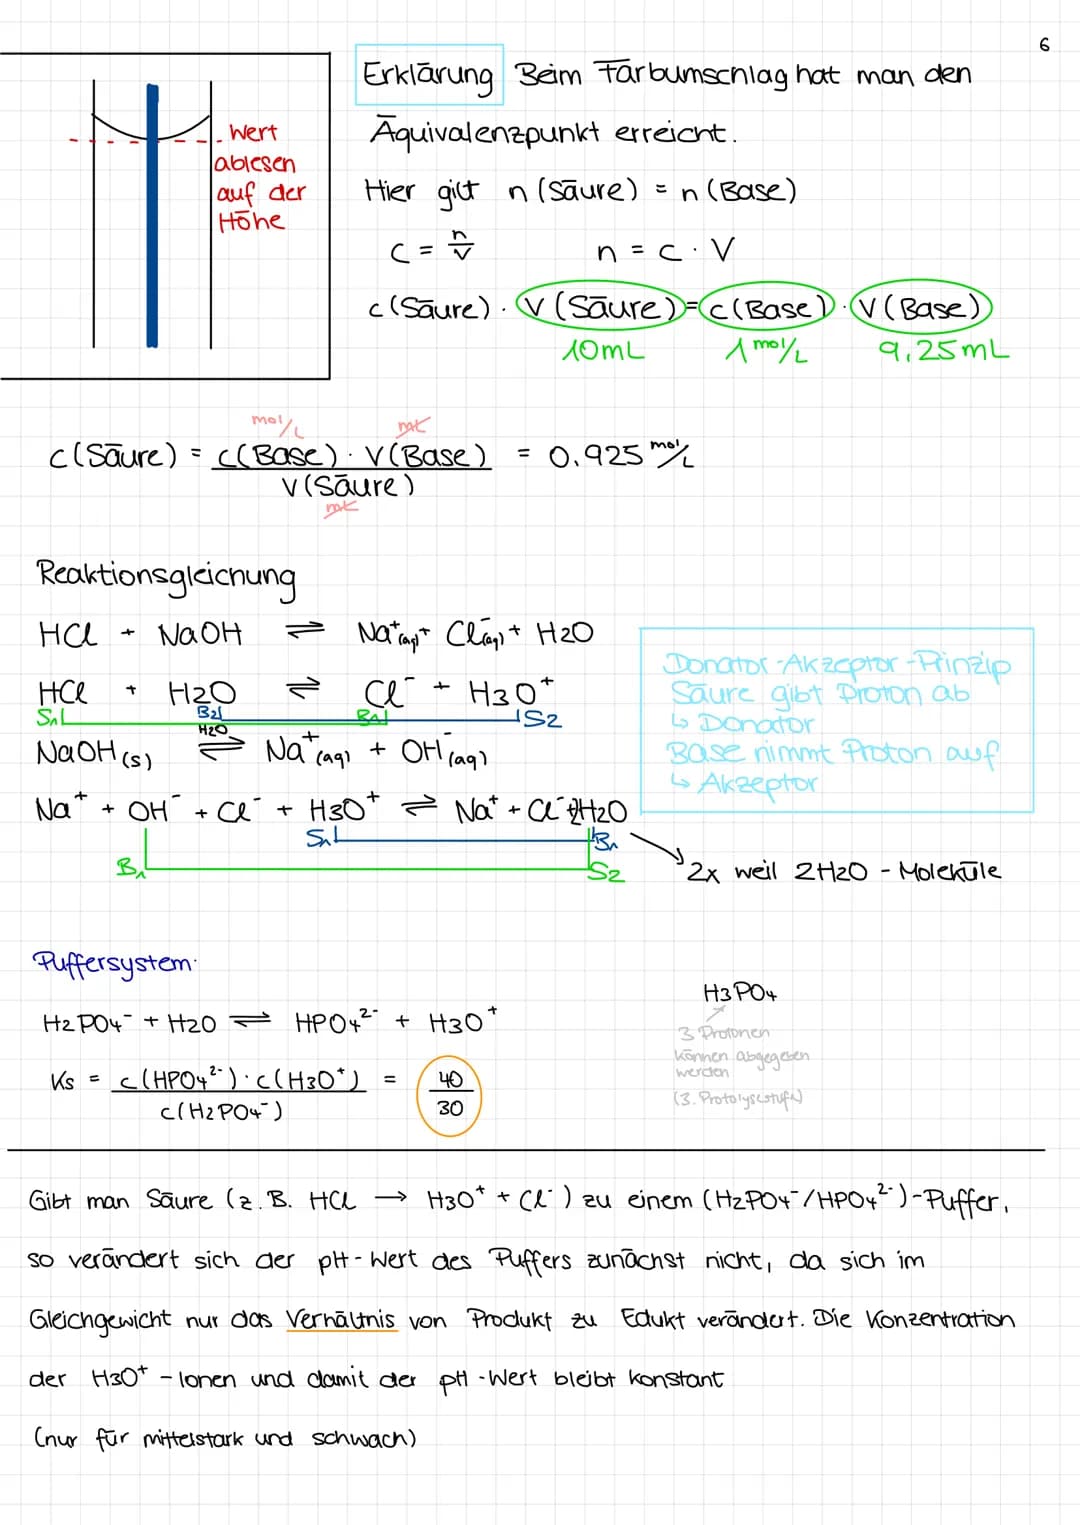 6
Erklärung Beim Farbumschlag hat man den
Äquivalenzpunkt erreicht.
Hier gilt n (Säure) = n (Base)
c = n/V n = c · V
c (Säure) · V (Säure) = c (Base) · V (Base)
10mL 1 mol/L 9,25mL
Wert
ablesen
auf der
Höhe
mol/L mL
c(Säure) = c(Base) · V(Base) / V(Säure) = 0,925 mol/L
mL
Reaktionsgleichung
HCl + NaOH ⇌ Na⁺(aq) + Cl⁻(aq) + H2O
HCl + H2O ⇌ Cl⁻ + H3O⁺
S1 B2 B1 S2
H2O
NaOH (s) ⇌ Na⁺(aq) + OH⁻(aq)
Na⁺ + OH⁻ + Cl⁻ + H3O⁺ ⇌ Na⁺ + Cl⁻ + 2H2O
S1 B1
B1 S2
2x weil 2H2O - Moleküle
Donator-Akzeptor-Prinzip
Säure gibt Proton ab
↳ Donator
Base nimmt Proton auf
↳ Akzeptor
Puffersystem:
H2PO4⁻ + H2O ⇌ HPO4²⁻ + H3O⁺
Ks = c(HPO4²⁻) · c(H3O⁺) / c(H2PO4⁻) = 40/30
H3PO4
3 Protonen
können abgegeben
werden
(3. Protolysestufe)
Gibt man Säure (z.B. HCl → H3O⁺ + Cl⁻) zu einem (H2PO4⁻/HPO4²⁻)-Puffer,
so verändert sich der pH-Wert des Puffers zunächst nicht, da sich im
Gleichgewicht nur das Verhältnis von Produkt zu Edukt verändert. Die Konzentration
der H3O⁺ -Ionen und damit der pH-Wert bleibt konstant
(nur für mittelstark und schwach)